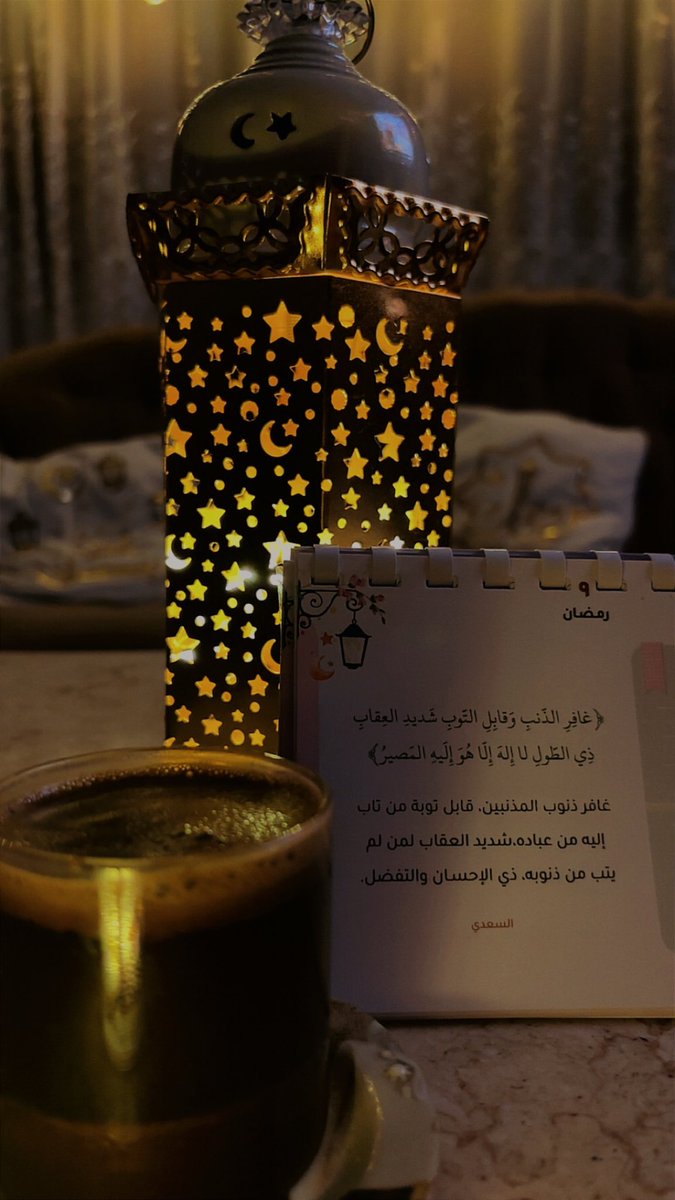 ٩
رمضان
﴿غافِرِ الذَّنبِ وَقابِلِ التَّوبِ شَديدِ العِقابِ
ذِي الطَّولِ لا إِلهَ إِلّا هُوَ إِلَيهِ المَصيرُ﴾
غافر ذنوب المذنبين، قابل توبة من تاب
إليه من عباده،شديد العقاب لمن لم
يتب من ذنوبه، ذي الإحسان والتفضل.
السعدي